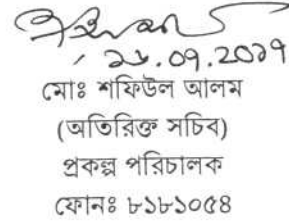 ২৮.০৭.২০১৭
মোঃ শফিউল আলম
(অতিরিক্ত সচিব)
প্রকল্প পরিচালক
ফোনঃ ৮১৮১০৫৪